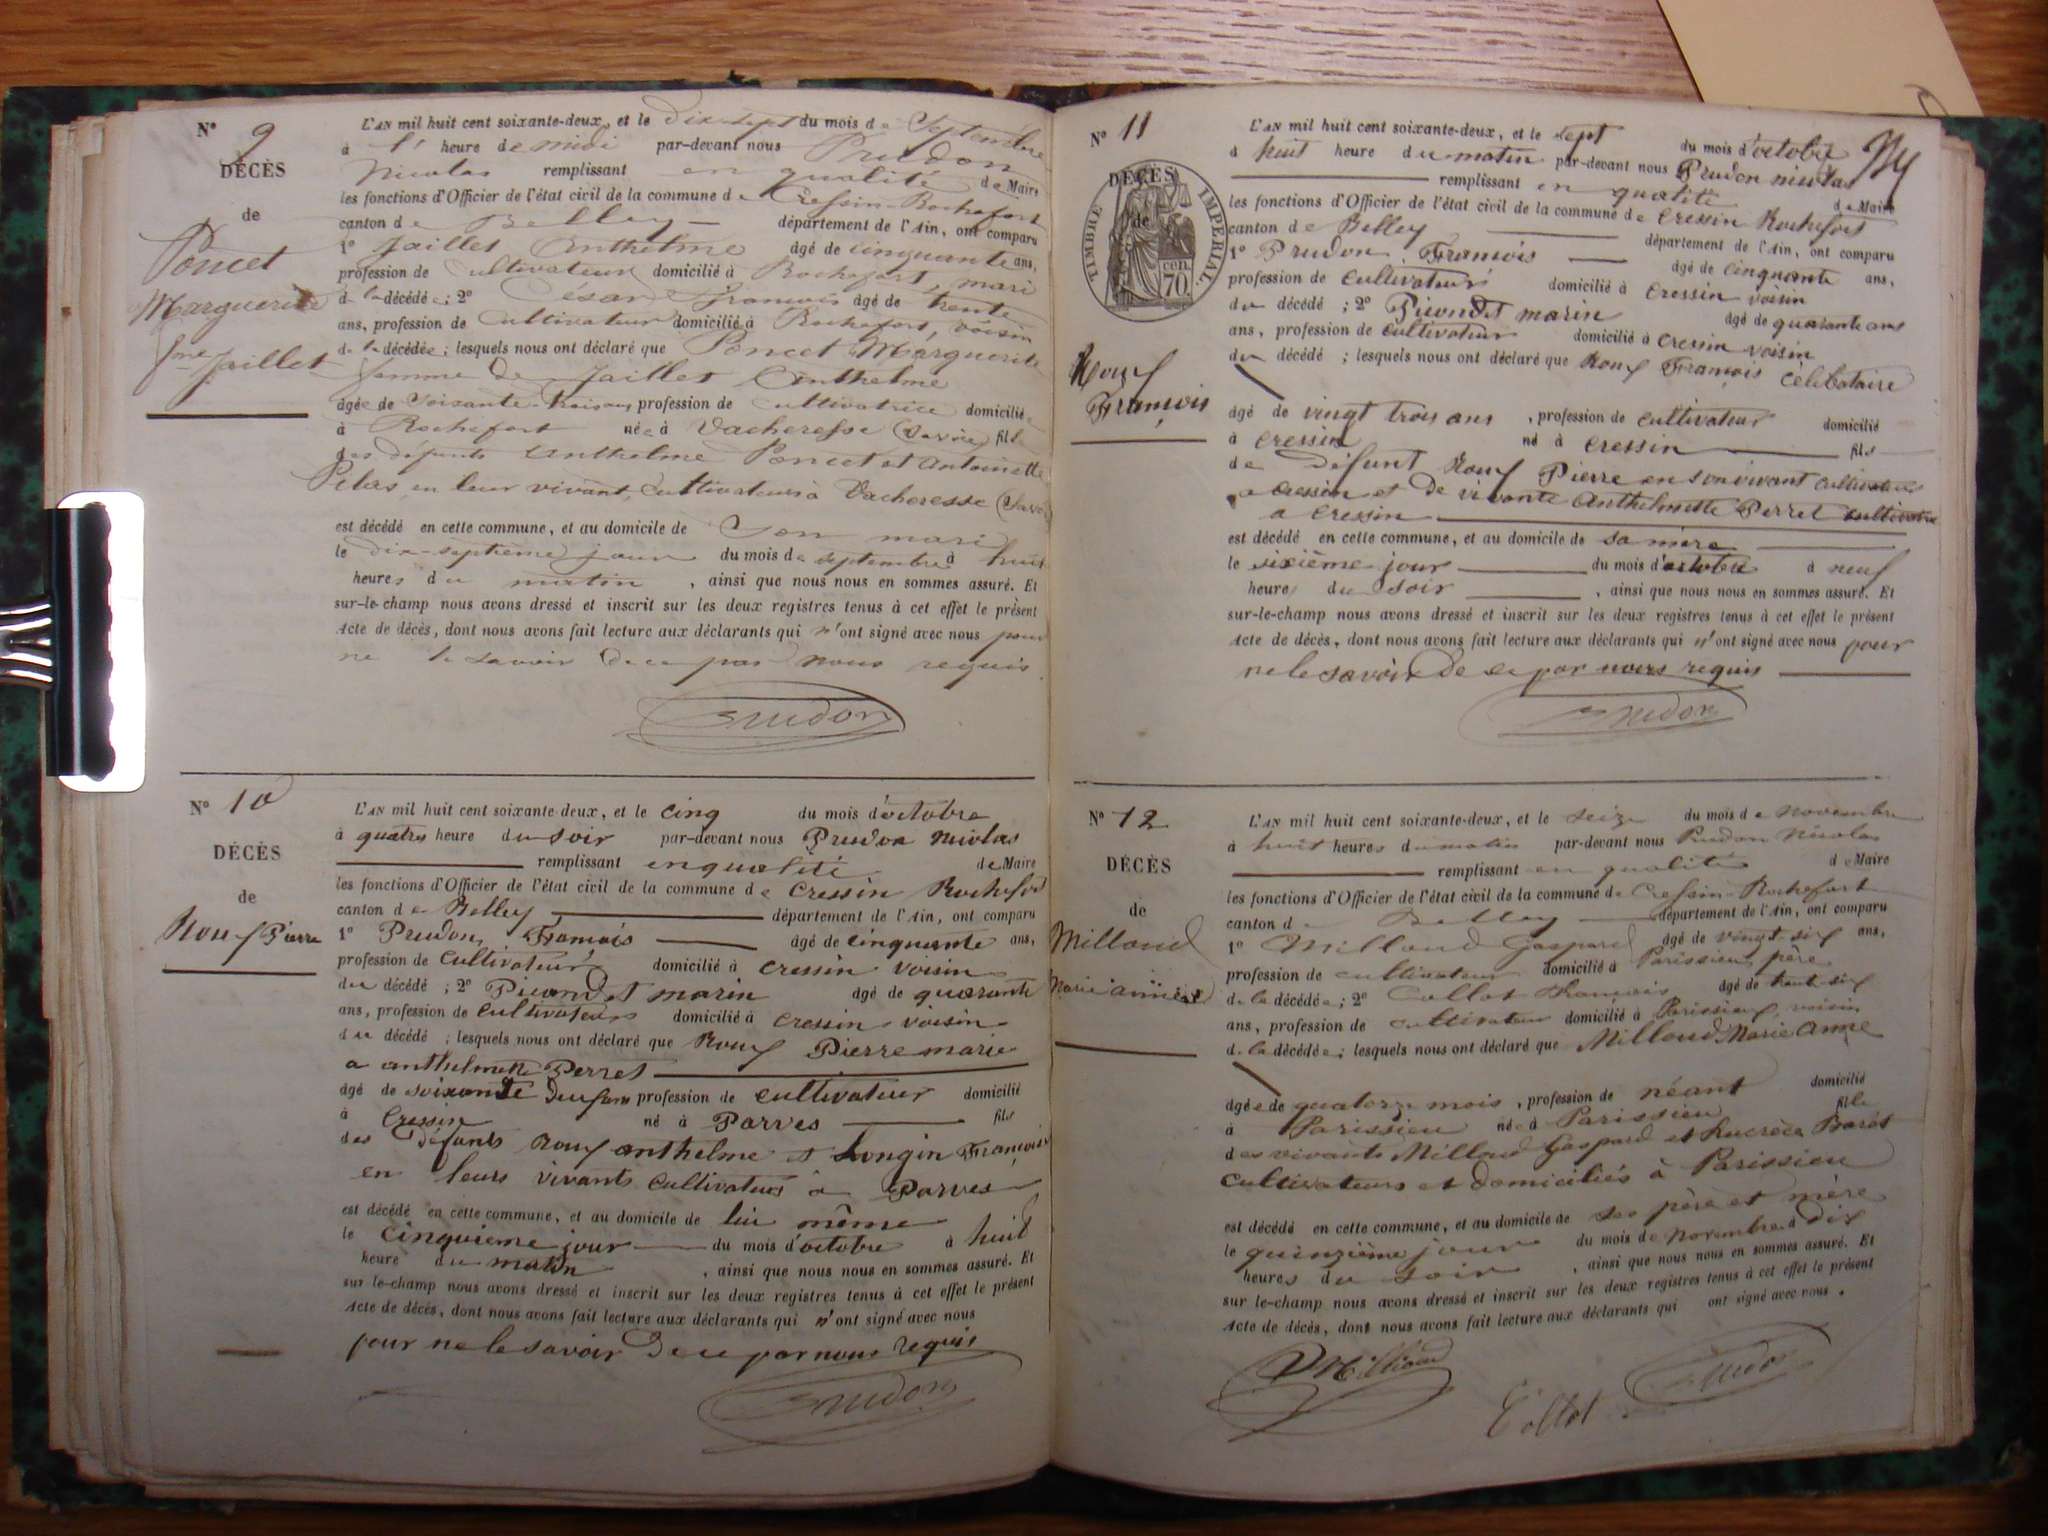 N° 9
DÉCÈS
de
Poncet
Marguerite
fme Jaillet
L'AN mil huit cent soixante-deux, et le dix-sept du mois de Septembre
à l' heure de midi par-devant nous Prudon
Nicolas remplissant en qualité de Maire
les fonctions d'Officier de l'état civil de la commune de Cressin-Rochefort
canton de Belley département de l'Ain, ont comparu
1° Jaillet Anthelme âgé de cinquante ans,
profession de Cultivateur domicilié à Rochefort, mari
de la décédée; 2° César François âgé de trente
ans, profession de Cultivateur domicilié à Rochefort, voisin
de la décédée; lesquels nous ont déclaré que Poncet Marguerite
femme de Jaillet Anthelme
âgée de soixante-trois ans profession de cultivatrice domiciliée
à Rochefort née à Vacheresse (Savoie) fille
des défunts Anthelme Poncet et Antoinette
en leur vivant, cultivateurs à Vacheresse (Savoie
est décédé en cette commune, et au domicile de Son mari
le dix-septième jour du mois de septembre à huit
heures du matin, ainsi que nous nous en sommes assuré. Et
sur-le-champ nous avons dressé et inscrit sur les deux registres tenus à cet effet le présent
Acte de décès, dont nous avons fait lecture aux déclarants qui n'ont signé avec nous pour
ne le savoir de ce par nous requis
Prudon
N° 10
DÉCÈS
de
Roux Pierre
L'AN mil huit cent soixante-deux, et le cinq du mois d'octobre
à quatre heure du soir par-devant nous Prudon nicolas
remplissant en qualité de Maire
les fonctions d'Officier de l'état civil de la commune de Cressin Rochefort
canton de Belley département de l'Ain, ont comparu
1° Prudon François âgé de cinquante ans,
profession de cultivateur domicilié à cressin voisin
du décédé; 2° marin âgé de quarante
ans, profession de cultivateur domicilié à cressin voisin
du décédé; lesquels nous ont déclaré que Roux Pierre marie
a anthelmette Perret
âgé de soixante deux ans profession de cultivateur domicilié
à Cressin né à Parves fils
des défunts Roux anthelme et Longin François
en leurs vivants cultivateurs à Parves
est décédé en cette commune, et au domicile de lui même
le cinquieme jour du mois d'octobre à huit
heure du matin, ainsi que nous nous en sommes assuré. Et
sur-le-champ nous avons dressé et inscrit sur les deux registres tenus à cet effet le présent
Acte de décès, dont nous avons fait lecture aux déclarants qui n'ont signé avec nous
pour ne le savoir de ce par nous requis
Prudon
N° 11
DÉCÈS
de
TIMBRE IMPÉRIAL
70 cen.
Roux
François
L'AN mil huit cent soixante-deux, et le sept du mois d'octobre
à huit heure du matin par-devant nous Prudon nicolas
remplissant en qualité de Maire
les fonctions d'Officier de l'état civil de la commune de Cressin Rochefort
canton de Belley département de l'Ain, ont comparu
1° Prudon François âgé de cinquante ans,
profession de cultivateur domicilié à cressin voisin
du décédé; 2° marin âgé de quarante ans
ans, profession de cultivateur domicilié à cressin voisin
du décédé; lesquels nous ont déclaré que Roux François célibataire
âgé de vingt trois ans, profession de cultivateur domicilié
à cressin né à cressin fils
de défunt Roux Pierre en son vivant cultivateur
a cressin et de vivante Anthelmette Perret cultivatrice
a cressin
est décédé en cette commune, et au domicile de sa mère
le sixième jour du mois d'octobre à neuf
heure du soir, ainsi que nous nous en sommes assuré. Et
sur-le-champ nous avons dressé et inscrit sur les deux registres tenus à cet effet le présent
Acte de décès, dont nous avons fait lecture aux déclarants qui n'ont signé avec nous pour
ne le savoir de ce par nous requis
Prudon
N° 12
DÉCÈS
de
Milloud
Marie anne
L'AN mil huit cent soixante-deux, et le seize du mois de novembre
à huit heures du matin par-devant nous Prudon Nicolas
remplissant en qualité de Maire
les fonctions d'Officier de l'état civil de la commune de Cressin-Rochefort
canton de Belley département de l'Ain, ont comparu
1° Milloud Gaspard âgé de vingt-six ans,
profession de cultivateur domicilié à Parissieu, père
de la décédée; 2° Collot François âgé de trente-six
ans, profession de cultivateur domicilié à Parissieu, voisin
de la décédée; lesquels nous ont déclaré que Milloud Marie Anne
âgée de quatorze mois, profession de néant domicilié
à Parissieu née à Parissieu fille
des vivants Milloud Gaspard et Lucrèce Barét
cultivateurs et domiciliés à Parissieu
est décédé en cette commune, et au domicile de ses père et mère
le quinzième jour du mois de novembre à dix
heures du soir, ainsi que nous nous en sommes assuré. Et
sur le-champ nous avons dressé et inscrit sur les deux registres tenus à cet effet le présent
Acte de décès, dont nous avons fait lecture aux déclarants qui ont signé avec nous.
Milloud
Collot
Prudon